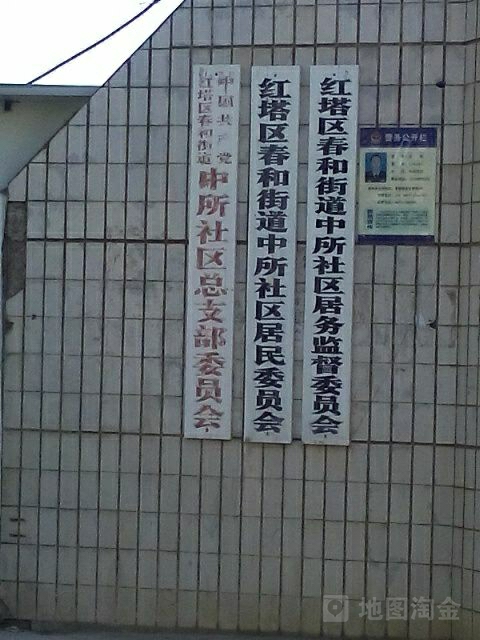 中国共产党
红塔区春和街道
中所社区总支部委员会
红塔区春和街道中所社区居民委员会
红塔区春和街道中所社区居务监督委员会
警务公开栏
地图淘金